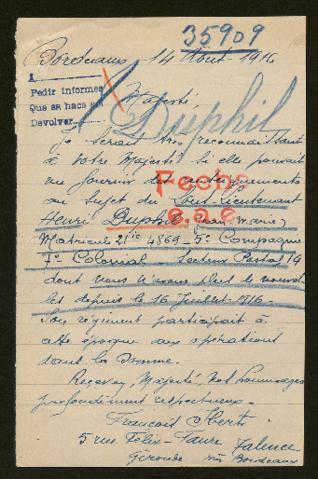 35909
Bordeaux 14 Août 1916
A
Pedir informes
Que se hace
Devolver
Majesté
Duphil
Je serais très reconnaissant
à Votre Majesté si elle pouvait
me fournir des renseignements
au sujet du Sous-Lieutenant
Henri Duphil (Jean-Marie)
Matricule 4869 5e Compagnie
7e Colonial Secteur Postal 19
dont nous n'avons plus de nouvel
les depuis le 16 Juillet 1916.
Son régiment participait à
cette époque aux opérations
dans la Somme.
Recevez, Majesté, nos hommages
profondément respectueux.
François
5 rue Félix-Faure Talence
Gironde Bordeaux